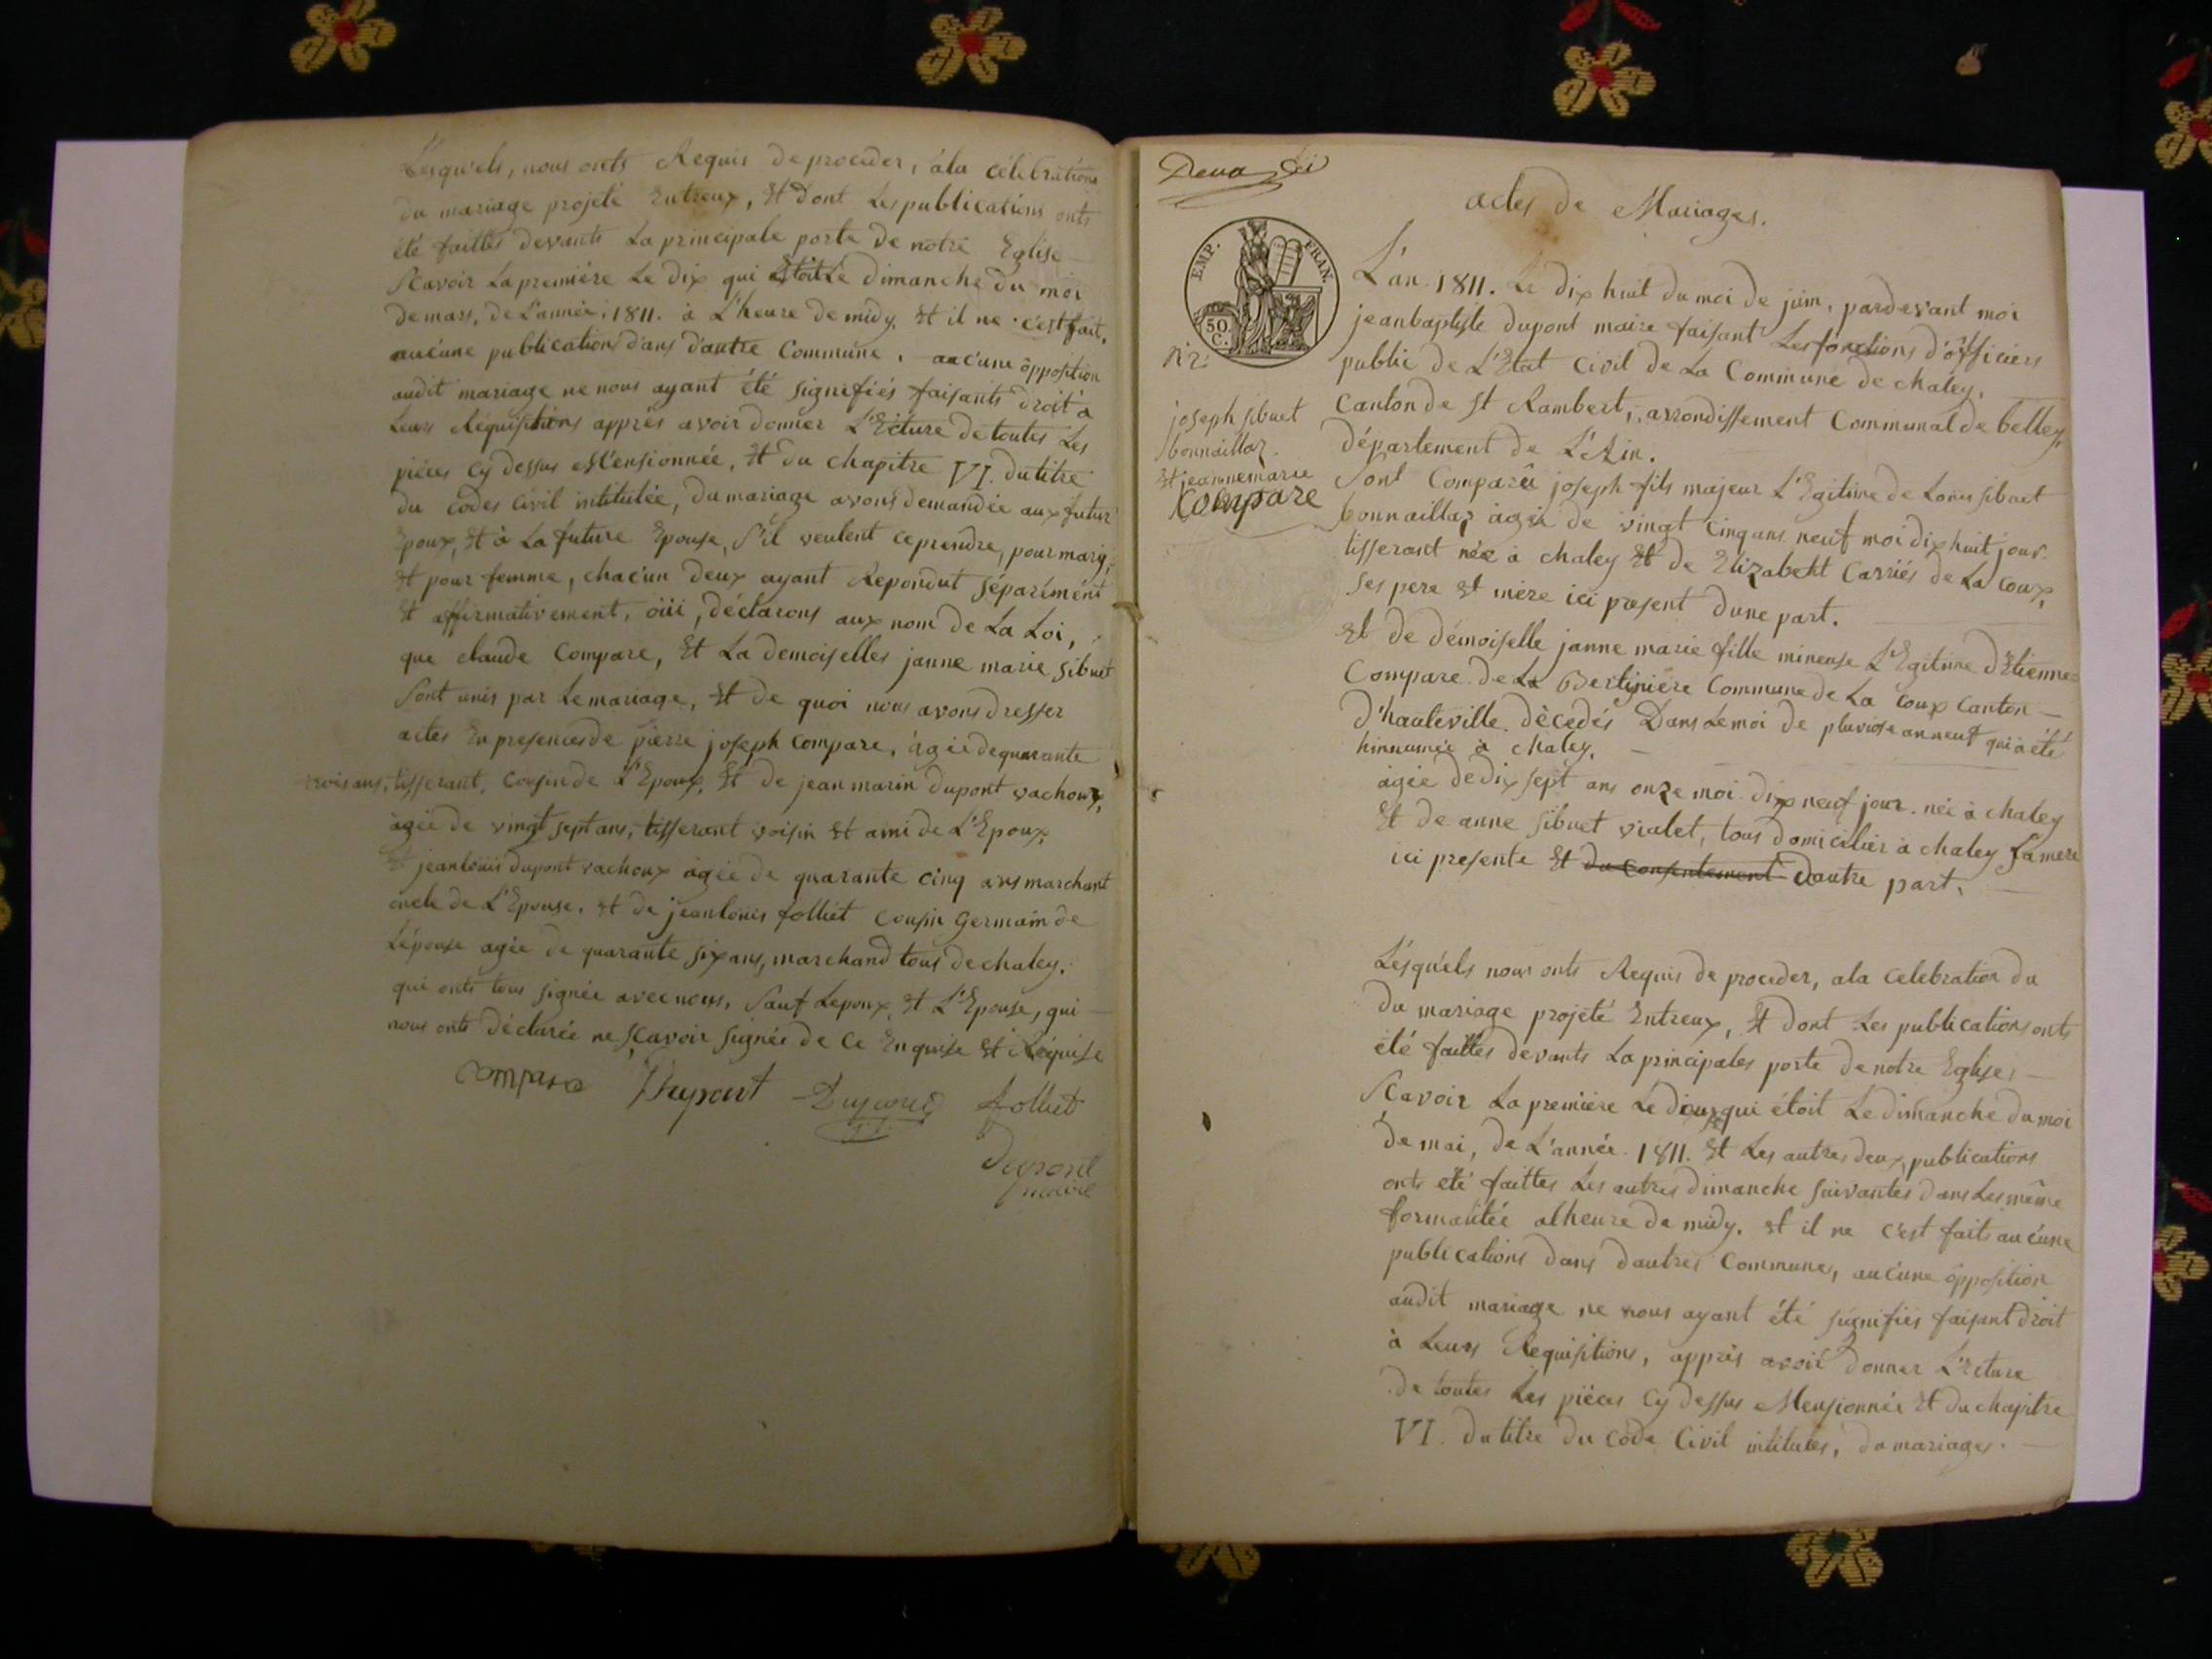 Lésqu'els, nous onts Requis de proceder, à la célébrations
du mariage projeté Entreux, Et dont Les publications onts
été faittes devants La principale porte de notre Eglise
Scavoir La premiére Le dix qui Etoit Le dimanche du moi
de mars, de L'année, 1811. à L'heure de midy, Et il ne c'est fait,
aucune publications dans d'autre Commune, aucune opposition
audit mariage ne nous ayant été signifiés faisants droit à
Leurs Réquisitions apprés avoir donner L'Ecture de toutes Les
piéces Cy dessus Mensionnée, Et du chapitre VI. du titre
du codes Civil intitulée, du mariage avons demandée aux futur
Epoux, Et à La future Epouse, S'il veulent ce prendre, pour mary,
Et pour femme, chac'un deux ayant Repondut séparément
Et affirmativement, oiii, déclarons aux nom de La Loi,
que claude Compare, Et La demoiselles janne marie sibuet
Sont unis par Le mariage, Et de quoi nous avons dresser
actes En presences de pierre joseph Compare, àgée de quarante
trois ans, tisserant, Cousin de L'Epoux, Et de jean marin dupont vachoux,
àgée de vingt sept ans, tisserant voisin Et ami de L'Epoux,
Et jean loüis dupont vachoux àgée de quarante cinq ans marchant
oncle de L'Epouse. Et de jean louis folliet Cousin germain de
Lépouse agée de quarante six ans, marchand tous de chaley,
qui onts tous signée avec nous, Sauf Lepoux, Et L'Epouse, qui
nous onts déclarée ne Scavoir signée de Ce Enquise Et Réquise
Compare Dupont Dupont folliet
dupont
maire
actes de Mariages.
EMP. FRAN.
50.
C.
N. 2.
joseph sibuet
bonnaillaz
Et jeannemarie
Compare
L'an. 1811. Le dix huit du moi de juin, pardevant moi
jean baptiste dupont maire faisant Les fonctions d'officiers
public de L'Etat Civil de La Commune de chaley,
Canton de St Rambert, arrondissement Communal de belley,
Département de L'Ain.
Sont Comparû joseph fils majeur L'Egitime de Louis sibuet
bonnaillaz àgée de vingt Cinq ans neuf moi dix huit jour
tisserant née à chaley Et de Elizabeht Carriés de La Coux,
Ses pere Et mère ici present dune part.
Et de démoiselle janne marie fille mineuse L'Egitime d'Etienne
Compare de La Bertiniére Commune de La Coux Canton
d'hauteville. dècedés Dans Le moi de pluviose an neuf qui à été
hinnumée à chaley.
àgée de dix sept ans onze moi dix neuf jour. née à chaley
Et de anne sibuet vialet, tous domicilier à chaley Samere
ici presente Et du Consentement dautre part.
Lésqu'els nous onts Requis de proceder, a la Celebration du
du mariage projeté Entreux, Et dont Les publications onts
été faittes devants La principales porte de notre Eglises
Scavoir La premiere Le douze qui étoit Le dimanche du moi
de mai, de L'année 1811. Et Les autres deux publications
onts été faittes Les autres dimanche suivantes dans Les même
formalitée alheure de midy. Et il ne c'est faits aucune
publications dans dautres Commune, aucune opposition
audit mariage ne nous ayant été signifiés faisant droit
à Leurs Requisitions, apprés avoir donner L'Ecture
de toutes Les piéces Cy dessus Mensionnée Et du chapitre
VI. du titre du Code Civil intitules, du mariages.